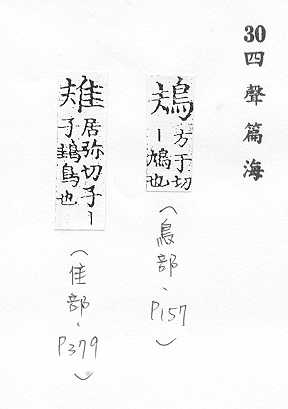 30四聲篇海
鳺
方于切
丨鳩也
(鳥部、P157)
居弥切子丨
子鳥也
(隹部、P379)